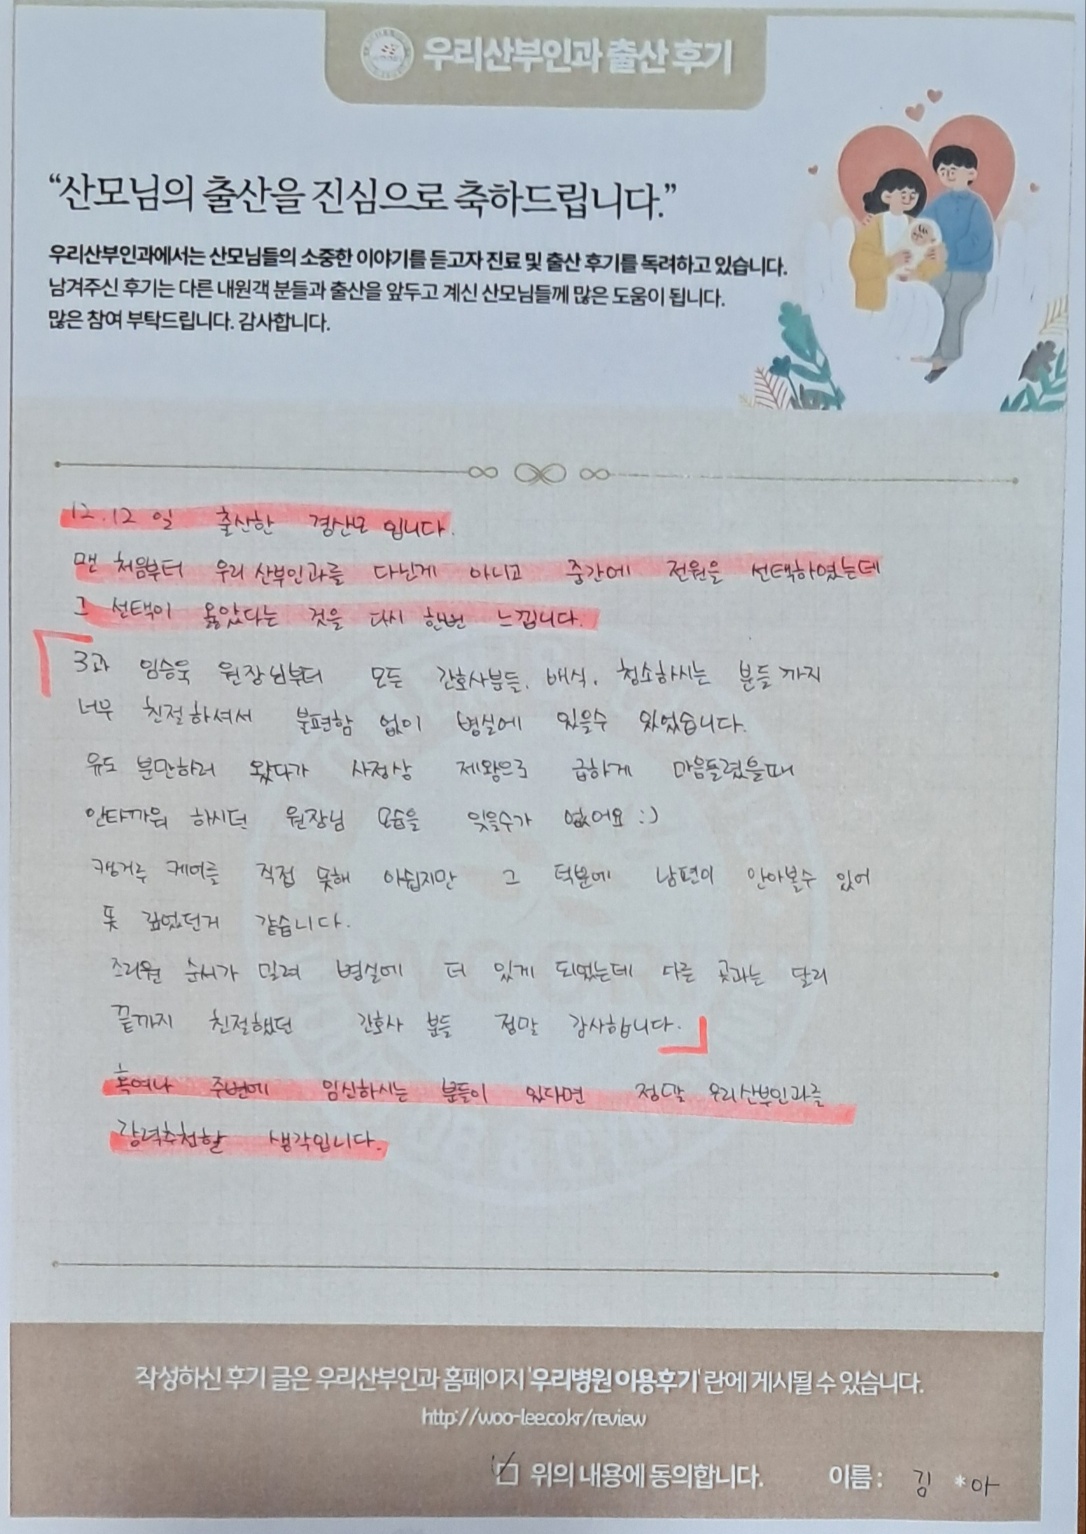 우리산부인과 출산 후기
“산모님의 출산을 진심으로 축하드립니다.”
우리산부인과에서는 산모님들의 소중한 이야기를 듣고자 진료 및 출산 후기를 독려하고 있습니다.
남겨주신 후기는 다른 내원객 분들과 출산을 앞두고 계신 산모님들께 많은 도움이 됩니다.
많은 참여 부탁드립니다. 감사합니다.
12.12일 출산한 경산모 입니다.
맨 처음부터 우리 산부인과를 다닌게 아니고 중간에 전원을 선택하였는데
그 선택이 옳았다는 것을 다시 한번 느낍니다.
3과 임승욱 원장님부터 모든 간호사분들, 배식, 청소하시는 분들 까지
너무 친절하셔서 불편함 없이 병실에 있을수 있었습니다.
유도 분만하러 왔다가 사정상 제왕으로 급하게 마음돌렸을때
안타까워 하시던 원장님 모습을 잊을수가 없어요 :)
캥거루 케어를 직접 못해 아쉽지만 그 덕분에 남편이 안아볼수 있어
뜻 깊었던거 같습니다.
조리원 순서가 밀려 병실에 더 있게 되었는데 다른 곳과는 달리
끝까지 친절했던 간호사 분들 정말 감사합니다.
혹여나 주변에 임신하시는 분들이 있다면 정말 우리산부인과를
강력추천할 생각입니다.
작성하신 후기 글은 우리산부인과 홈페이지 '우리병원 이용후기' 란에 게시될 수 있습니다.
http://woo-lee.co.kr/review
위의 내용에 동의합니다. 이름 : 김 *아